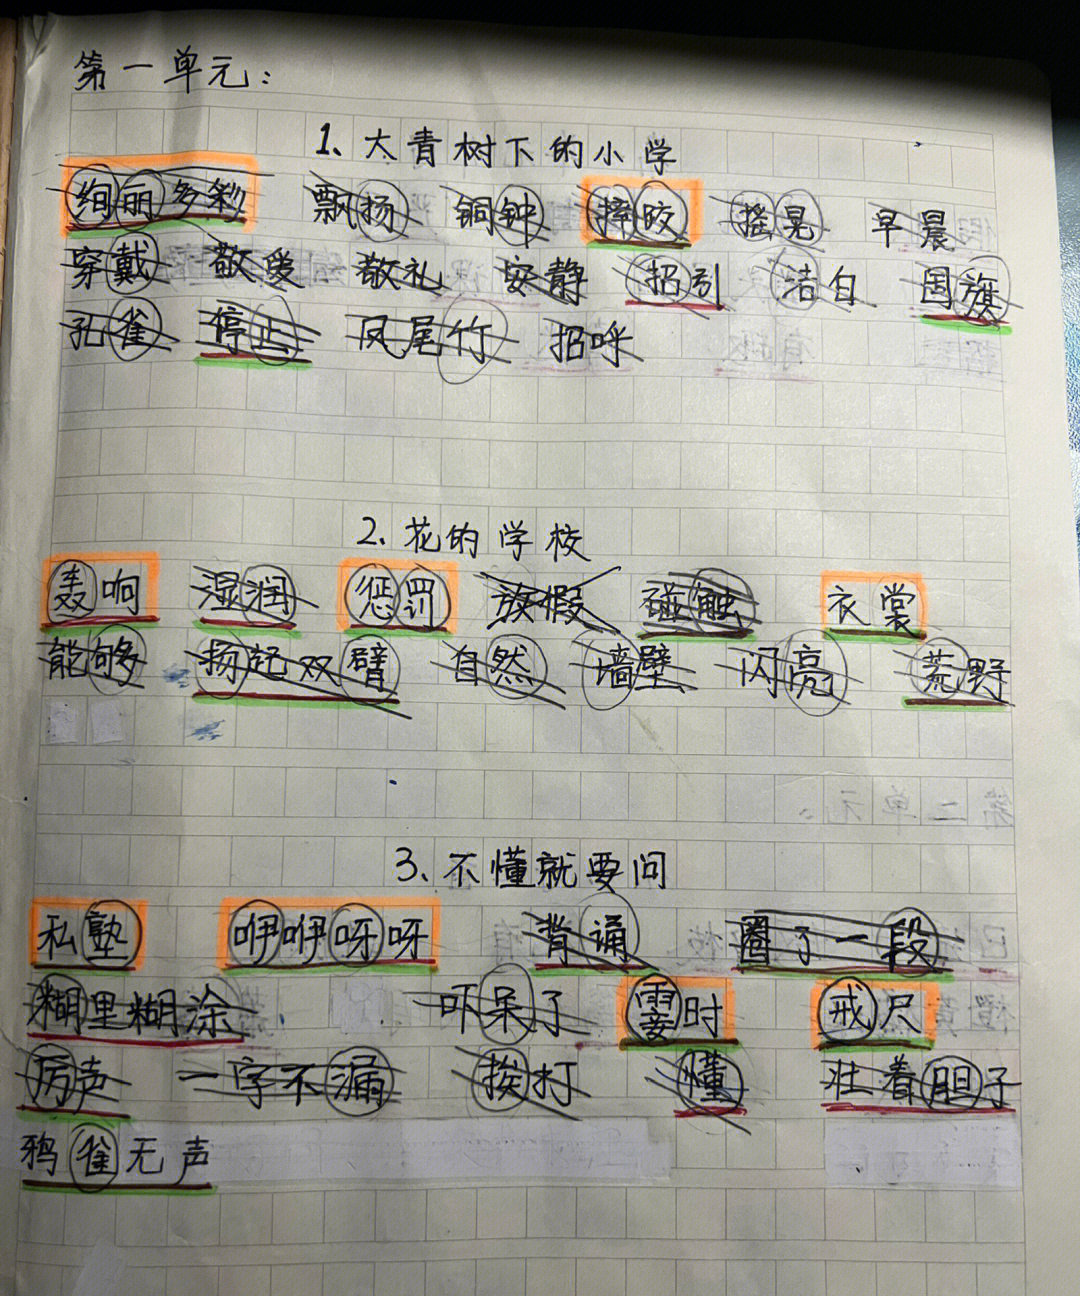 第一单元:
1、大青树下的小学
绚丽多彩 飘扬 铜钟 摔跤 摇晃 早晨
穿戴 敬爱 敬礼 安静 招引 洁白 国旗
孔雀 停止 凤尾竹 招呼
2、花的学校
轰响 湿润 惩罚 放假 碰触 衣裳
能够 扬起双臂 自然 墙壁 闪亮 荒野
3、不懂就要问
私塾 咿咿呀呀 背诵 圈了一段
糊里糊涂 吓呆了 霎时 戒尺
厉声 一字不漏 挨打 懂 壮着胆子
鸦雀无声